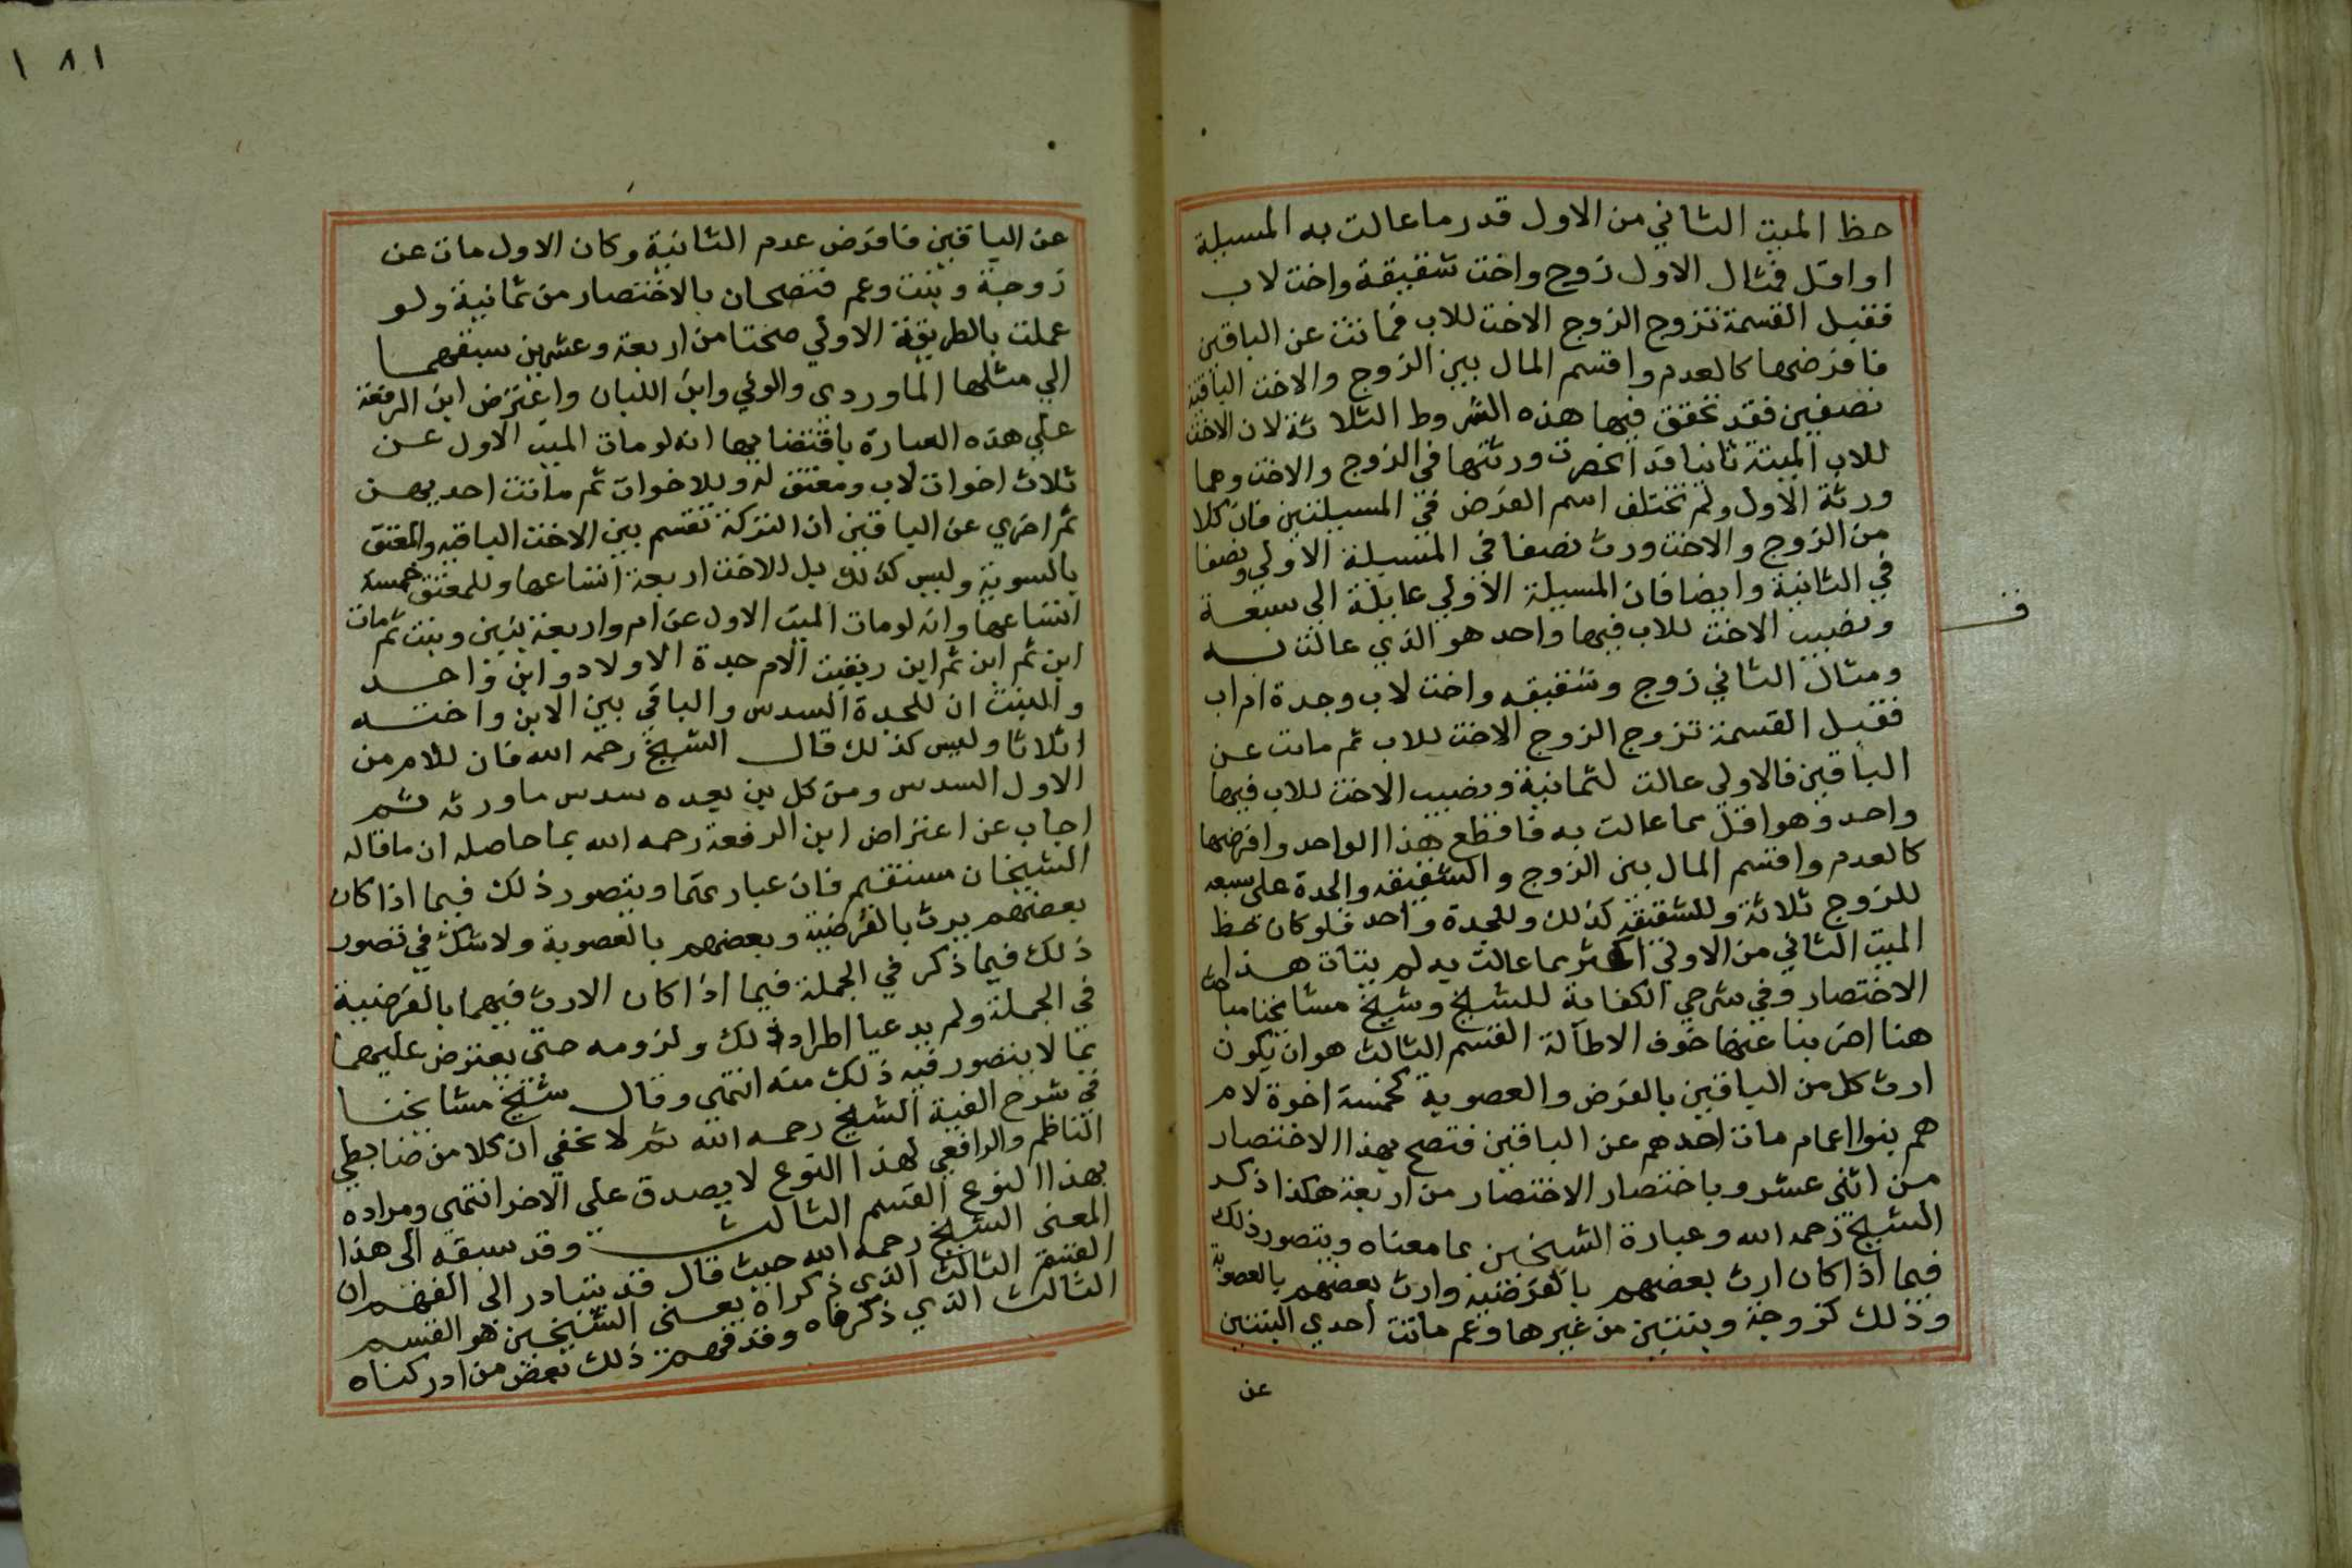 حظ الميت الثاني من الاول قدر ما عالت به المسيلة
او اقل فمثال الاول زوج واخت شقيقة واخت لاب
فقبل القسمة تزوج الزوج الاخت للاب فماتت عن الباقين
فافرضها كالعدم واقسم المال بين الزوج والاخت الباقية
نصفين فقد تحقق فيها هذه الشروط الثلاثة لان الاخت
للاب الميتة ثانيا قد انحصرت ورثتها في الزوج والاخت وهما
ورثة الاول ولم تختلف اسم الفرض في المسيلتين فان كلا
من الزوج والاخت ورث نصفا في المسيلة الاولي ونصفا
في الثانية وايضا فان المسيلة الاولي عايلة الي سبعة
ونصيب الاخت للاب فيها واحد هو الذي عالت به
ومثال الثاني زوج وشقيقه واخت لاب وجدة ام اب
فقبل القسمة تزوج الزوج الاخت للاب ثم ماتت عن
الباقين فالاولي عالت لثمانية ونصيب الاخت للاب فيها
واحد وهو اقل مما عالت به فاقطع هذا الواحد وافرضها
كالعدم واقسم المال بين الزوج والشقيقه والجدة على سبعه
للزوج ثلاثة وللشقيقه كذلك وللجدة واحد فلو كان حظ
الميت الثاني من الاولي اكثر مما عالت به لم يتات هذا
الاختصار وفي شرحي الكفاية للشيخ وشيخ مشايخنا مباحث
هنا اضربنا عنها خوف الاطالة القسم الثالث هو ان يكون
ارث كل من الباقين بالفرض والعصوبة كخمسة اخوة لام
هم بنوا اعمام مات احدهم عن الباقين فتصح بهذا الاختصار
من اثني عشر وباختصار الاختصار من اربعة هكذا ذكر
الشيخ رحمه الله وعبارة الشيخين بما معناه ويتصور ذلك
فيما اذا كان ارث بعضهم بالفرضية وارث بعضهم بالعصوبة
وذلك كزوجة وبنتين من غيرها وعم ماتت احدي البنتين
عن
ف
١٨١
عن الباقين فافرض عدم الثانية وكان الاول مات عن
زوجة وبنت وعم فتصحان بالاختصار من ثمانية ولو
عملت بالطريقة الاولي صحتا من اربعة وعشرين سبقهما
الي مثلها الماوردي والوني وابن اللبان واعترض ابن الرفعة
علي هذه العبارة باقتضايها انه لو مات الميت الاول عن
ثلاث اخوات لاب ومعتق له وللاخوات ثم ماتت احديهن
ثم اخري عن الباقين ان التركة تقسم بين الاخت الباقيه والمعتق
بالسوية وليس كذلك بل للاخت اربعة اتساعها وللمعتق خمسة
اتساعها وانه لو مات الميت الاول عن ام واربعة بنين وبنت ثم مات
ابن ثم ابن ثم ابن وبقيت الام جدة الاولاد وابن واحد
والبنت ان للجدة السدس والباقي بين الابن واخته
اثلاثا وليس كذلك قال الشيخ رحمه الله فان للام من
الاول السدس ومن كل بن بعده سدس ما ورثه ثم
اجاب عن اعتراض ابن الرفعة رحمه الله بما حاصله ان ما قاله
الشيخان مستقيم فان عبارتهما ويتصور ذلك فيما اذا كان
بعضهم يرث بالفرضية وبعضهم بالعصوبة ولا شك في تصور
ذلك فيما ذكر في الجملة فيما اذا كان الارث فيهما بالفرضية
في الجملة ولم يدعيا اطراد ذلك ولزومه حتى يعترض عليهما
بما لا يتصور فيه ذلك منه انتهى وقال شيخ مشايخنا
في شرح الفية الشيخ رحمه الله ثم لا تخفي ان كلا من ضابطي
الناظم والرافعي لهذا النوع لا يصدق على الاخر انتهى ومراده
بهذا النوع القسم الثالث وقد سبقه الى هذا
المعنى الشيخ رحمه الله حيث قال قد يتبادر الى الفهم ان
القسم الثالث الذي ذكراه يعني الشيخين هو القسم
الثالث الذي ذكرناه وقد فهم ذلك بعض من ادركناه